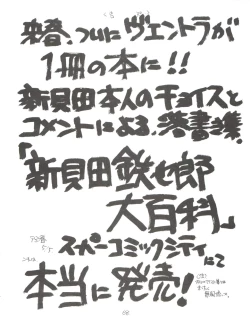 来春、ついにヴェントラが
1冊の本に!!
新貝田本人のチョイスと
コメントによる、落書き集。
「新貝田鉄也郎
大百科」
スーパーコミックシティにて
本当に発売!